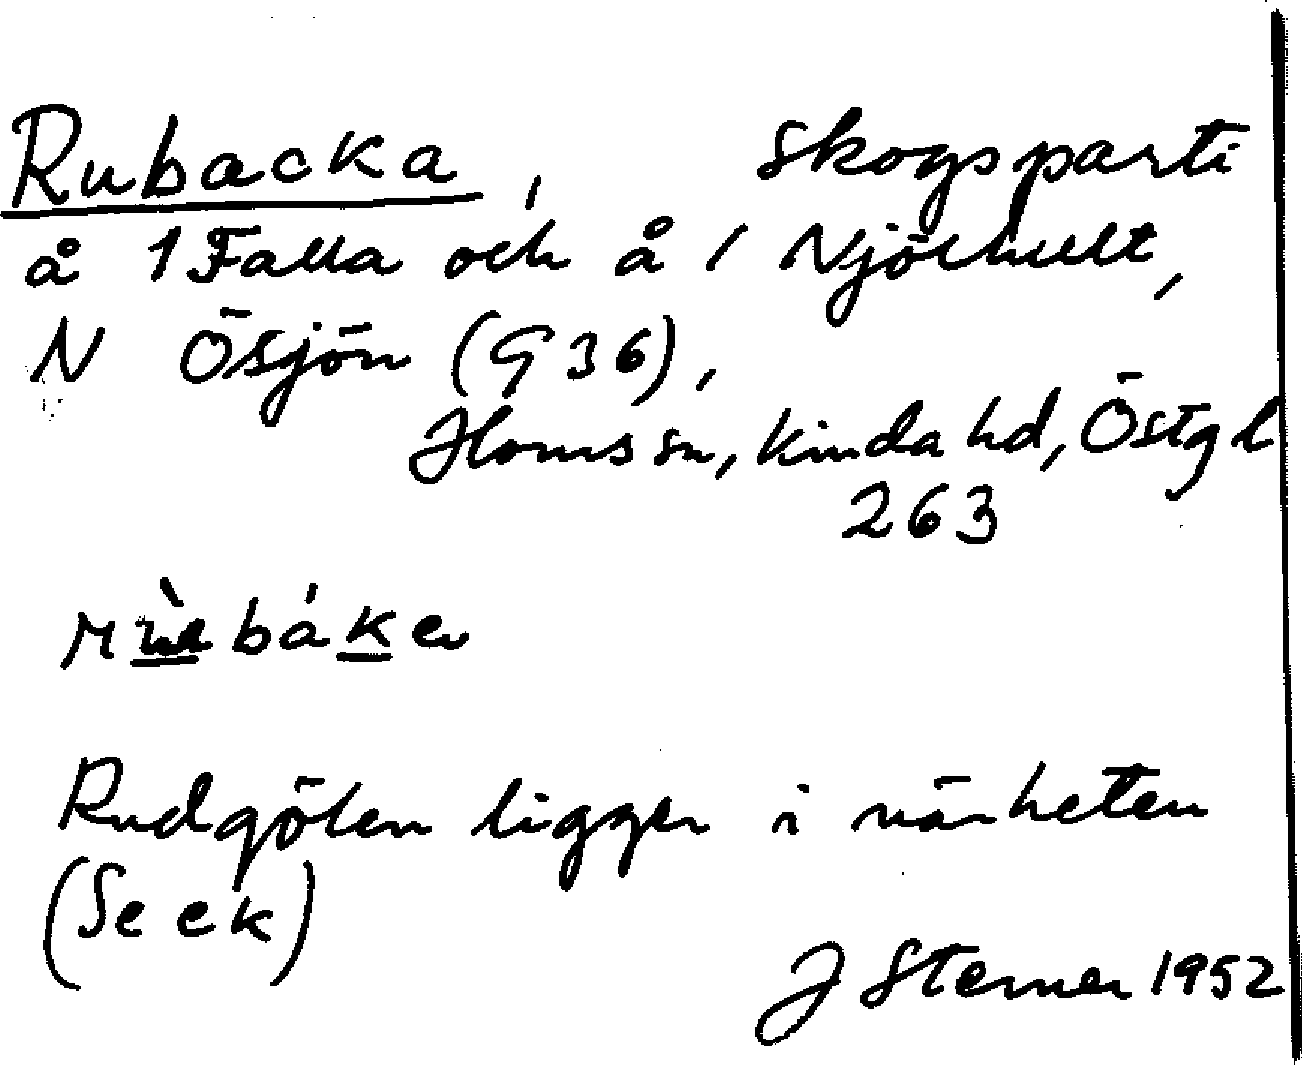 Rubacka, skogsparti
å 1 Falla och å 1 Njölhult,
N Ösjön (G 36),
Horns sn, Kinda hd, Östgl
263
Rudgölen ligger i närheten
(Se ek)
J Sterner 1952